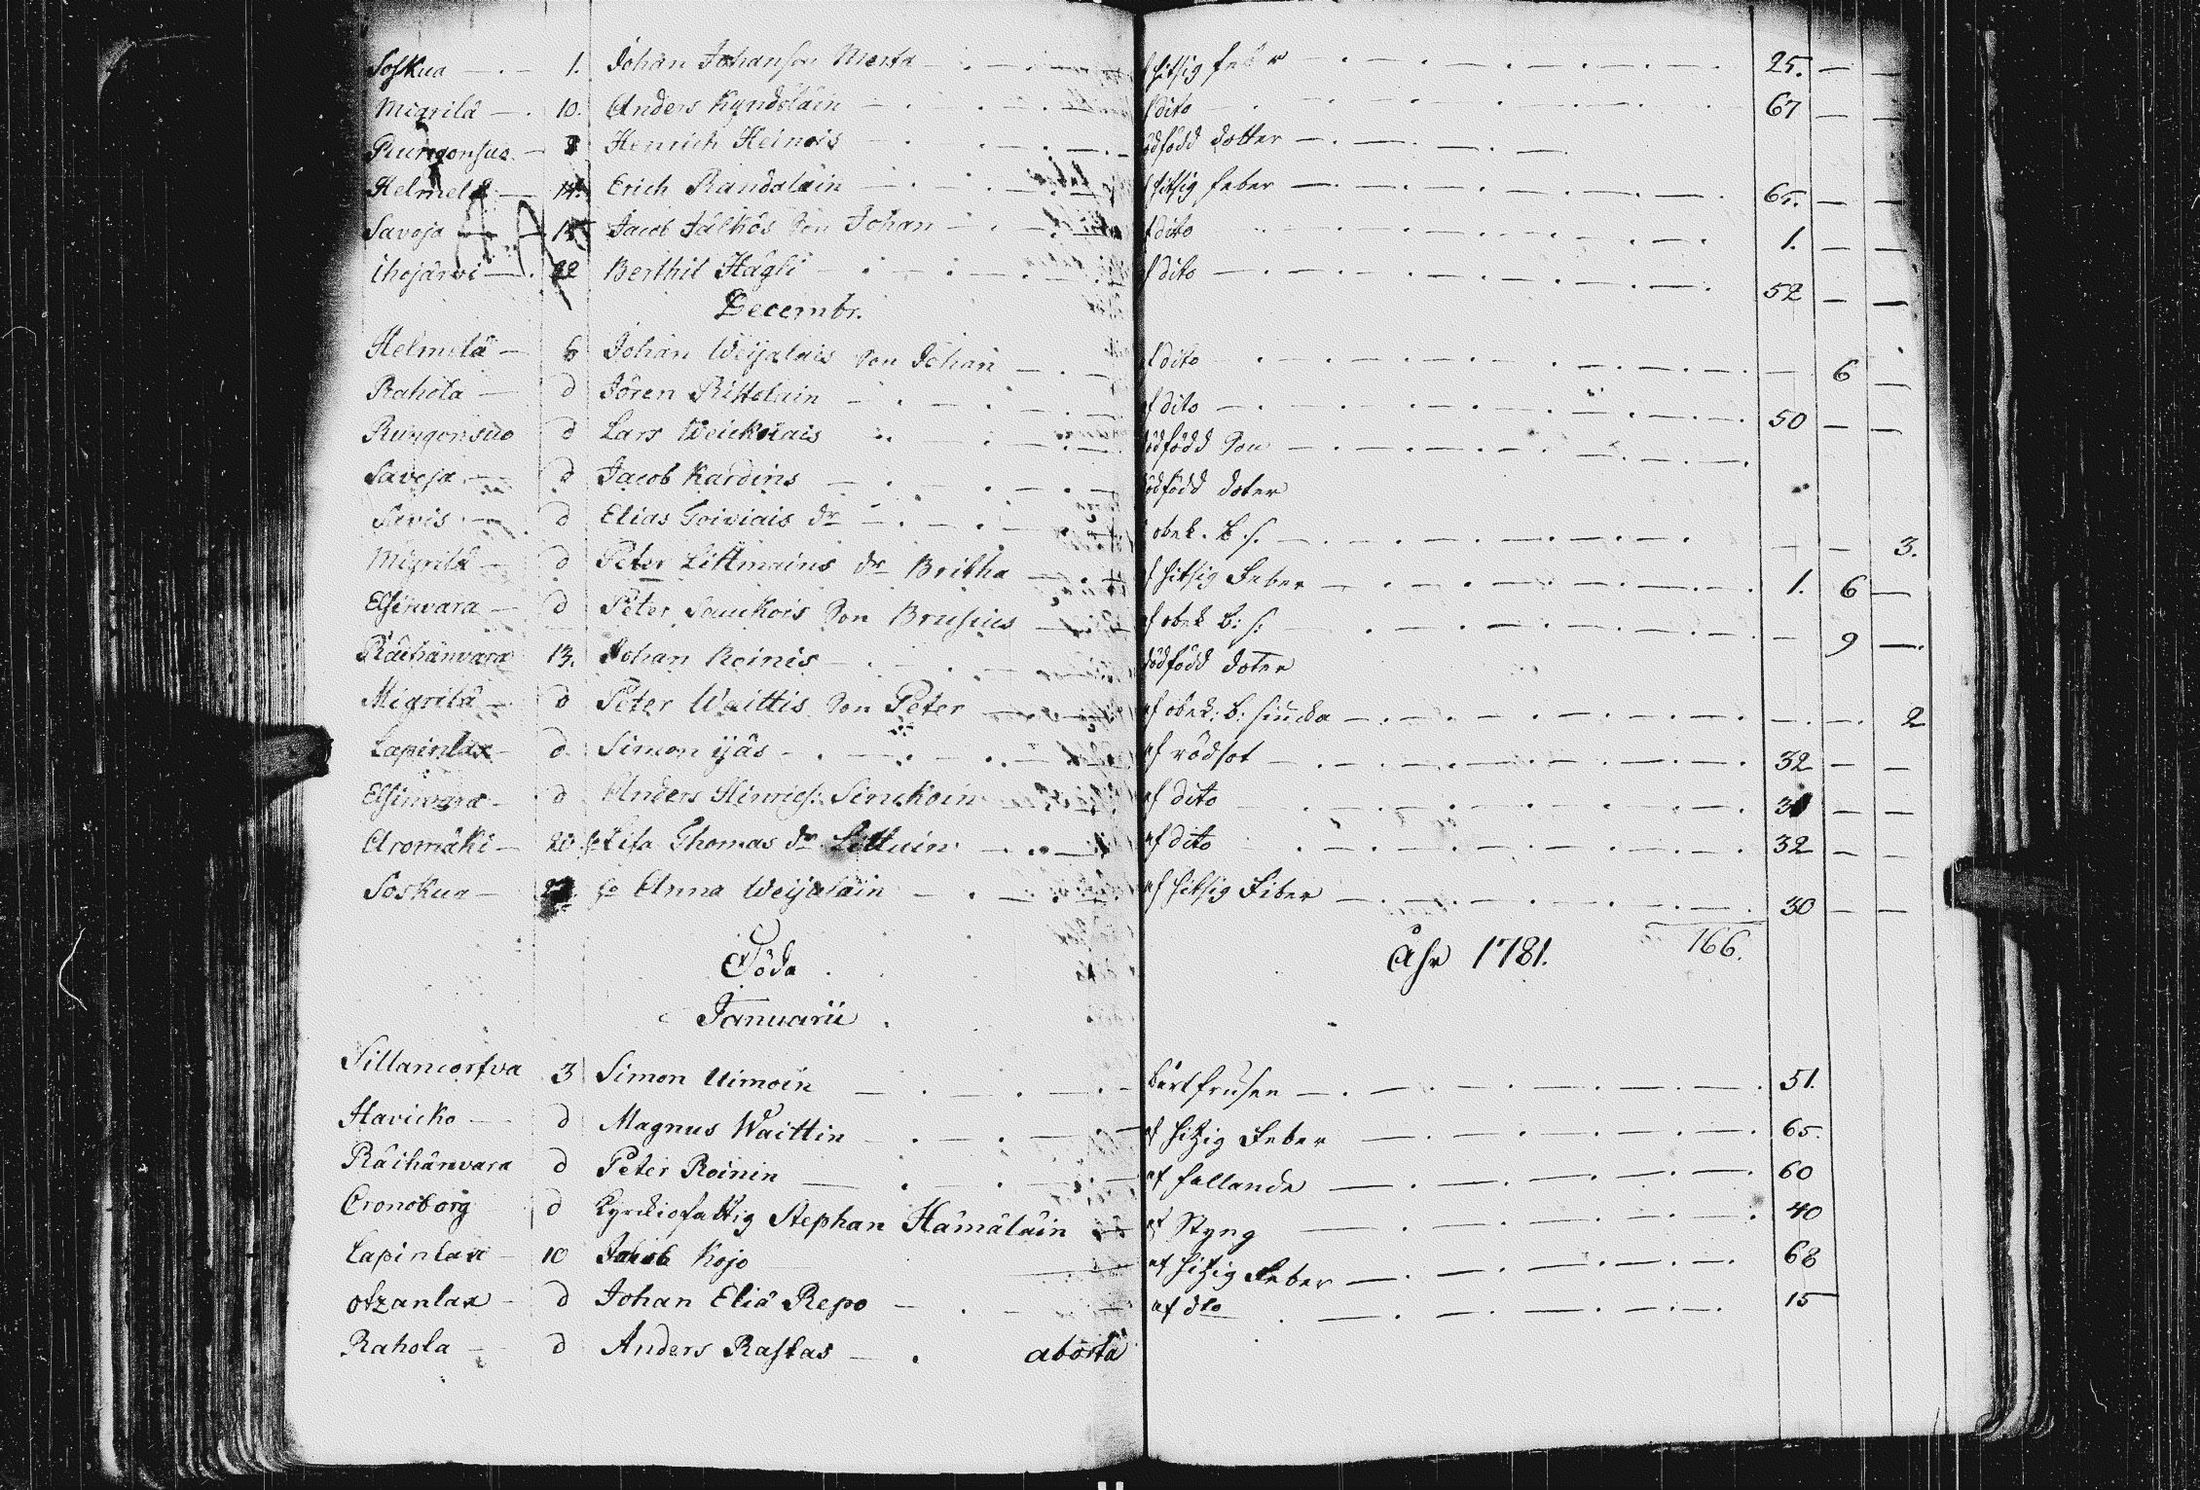 Soskua 1. Johan Johanson f hitsig feber 25.
Migrilä 10. Anders Kyndöläin f dito 67
Rungonsuo 8 Henrich Heinois ödfödd dotter
Helmelä 14. Erich Randalain f hitsig feber 65.
Savoja 15 Jacob Jälkös Son Johan f dito 1.
ihojärwi 22 Berthil Hägli af dito 52
Decembr.
Helmelä 6 Johan Weijalais Son Johan af dito 6
Rahola d Jören af dito 50
Rungonsuo d Lars Weickolais dödfödd Son
Savoja d Jacob Kardins dödfödd doter
Savis d Elias Toiviais dr obek. b. s. 3.
Migrilä d Peter Littmains dr Britha f hitsig Feber 1. 6
Elsinvara d Peter Sauckois Son Brusius af obek b: s: 9
Räihänvara 13. Johan Roinis dödfödd doter
Migrilä d Peter Waittis Son Peter af obek: b: siucka 2
Lapinlax d Simon ijäs af rödsot 32
Elsinvara d Anders Hinrics: Sinckoin af dito
Aromäki 20 Lisa Thomas dr af dito 32
Soskua Anna Weijalain af hitsig Feber 30
166.
Döda Åhr 1781.
Januarii
Sillancorfva 3 Simon Uimoin bortfrusen 51.
Havicko d Magnus Waittin af hitzig Feber 65.
Räihänvara d Peter Roinin af fallande 60
Cronoborg d Kyrckiofattig Stephan Hämäläin af Styng 40
Lapinlax 10 Jacob Kojo af hitzig Feber 68
otzanlax d Johan Eliä Repo af dto 15
Rahola d Anders Rastas aborta